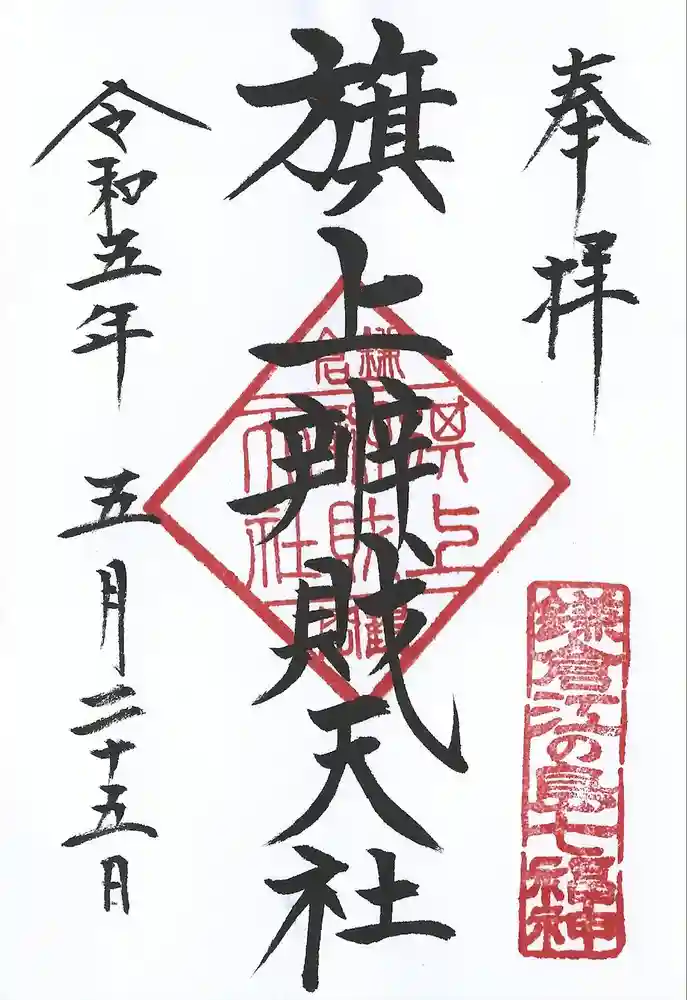 奉拝
鎌倉江の島七福神
旗上辨財天社
鎌倉
旗上
辨財
天社
令和五年 五月二十五日